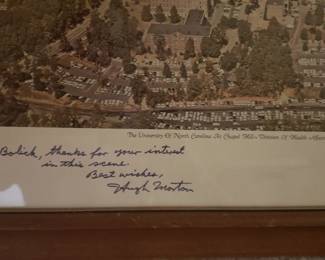 The University Of North Carolina At Chapel Hill's Division Of Health Affairs
Bolick, thanks for your interest
in this scene.
Best wishes,
Hugh Morton